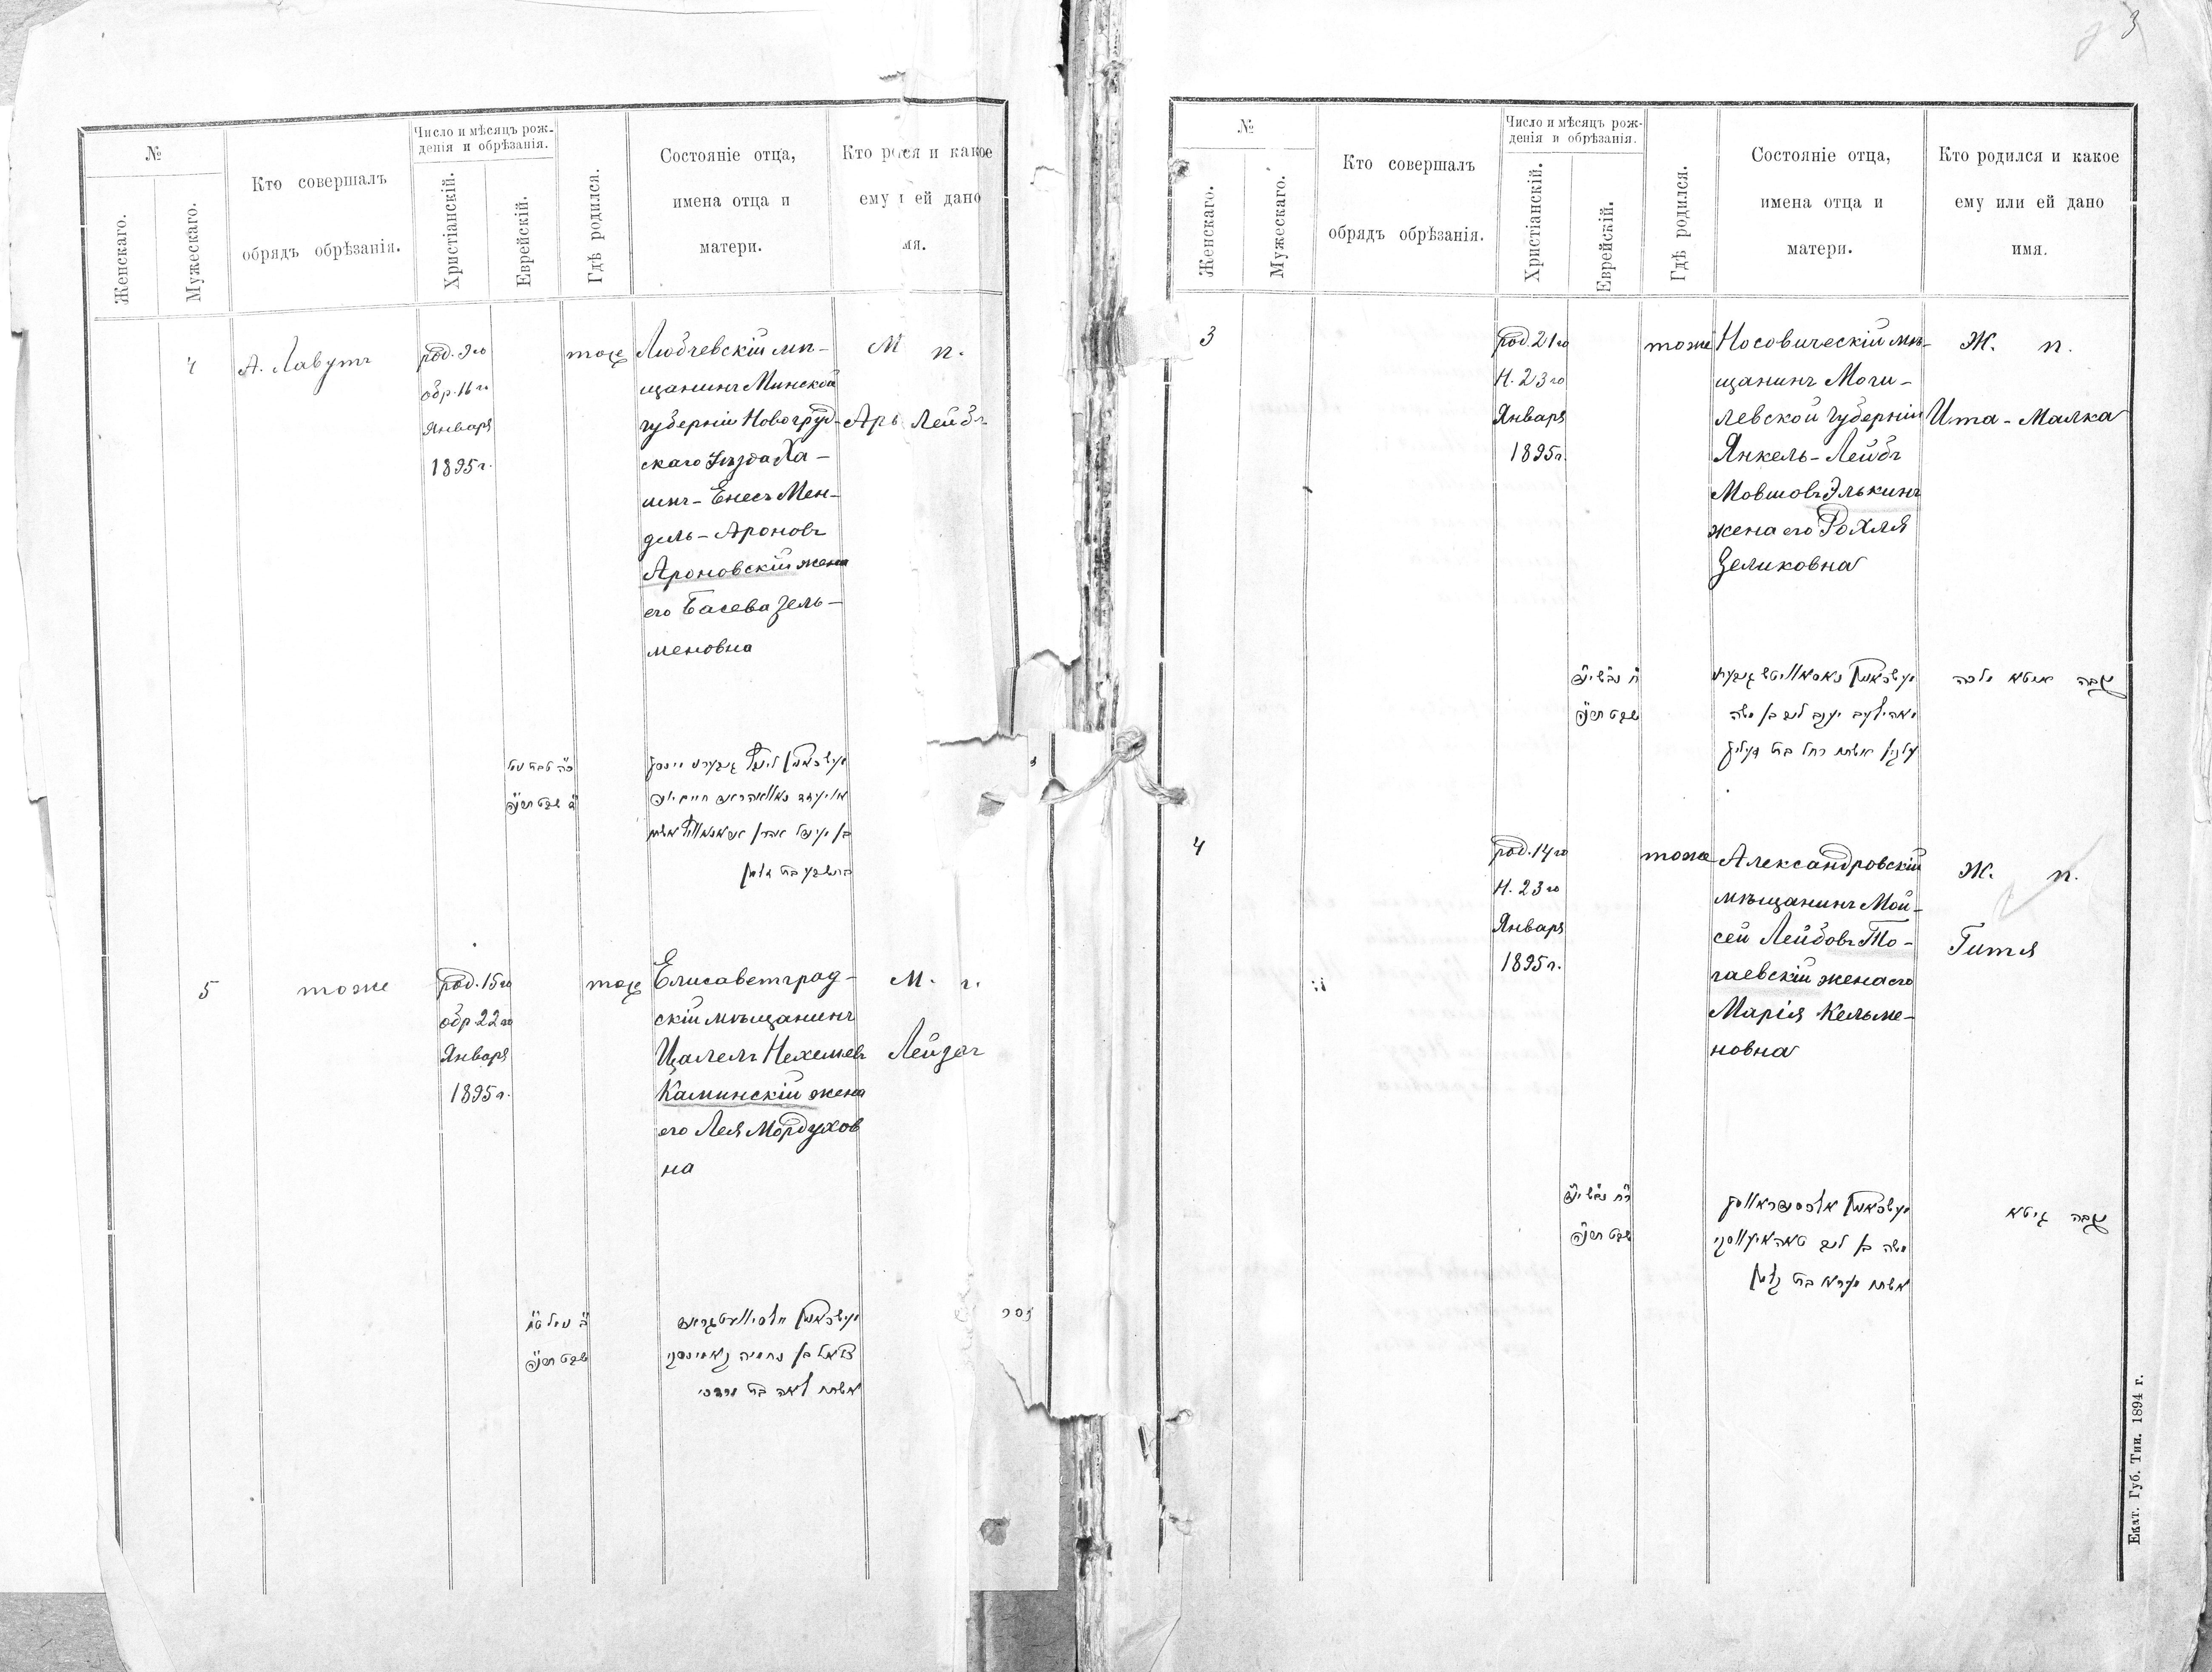 3
№
Женскаго.
Мужескаго.
Кто совершалъ
обрядъ обрѣзанія.
Число и мѣсяцъ рож-
денія и обрѣзанія.
Христіанскій.
Еврейскій.
Гдѣ родился.
Состояніе отца,
имена отца и
матери.
Кто ро ся и какое
ему и ей дано
мя.
4
А. Лавутъ
род. 9го
обр. 16го
Января
1895 г.
тоже
Любчевскій мѣ-
щанинъ Минской
губерніи Новогруд-
скаго уѣзда Ха-
имъ-Енесъ Мен-
дель-Ароновъ
Ароновскій жена
его Басева Зель-
меновна
М п.
Арь Лейбъ
שבט תרנ״ה
5
тоже
род. 15го
обр 22го
Января
1895 г.
тоже
Елисаветград-
скій мѣщанинъ
Цалель Нехемьев
Каминскій жена
его Лея Мордухов
на
М. п.
Лейзеръ
שבט תרנ״ה
אשתו לאה בת מרדכי
זכר
№
Женскаго.
Мужескаго.
Кто совершалъ
обрядъ обрѣзанія.
Число и мѣсяцъ рож-
денія и обрѣзанія.
Христіанскій.
Еврейскій.
Гдѣ родился.
Состояніе отца,
имена отца и
матери.
Кто родился и какое
ему или ей дано
имя.
3
род. 21го
Н. 23го
Января
1895 г.
тоже
Носовическій мѣ-
щанинъ Моги-
левской губерніи
Янкель-Лейбъ
Мовшовъ Элькинъ
жена его Рохля
Зеликовна
Ж. п.
Ита-Малка
שבט תרנ״ה
יעקב ליב בן משה
עלקין אשתו רחל בת זעליג
נקבה איטא מלכה
4
род. 14го
Н. 23го
Января
1895 г.
тоже
Александровскій
мѣщанинъ Мой-
сей Лейбовъ То-
гаевскій жена его
Марія Кельме-
новна
Ж. п.
Гитя
שבט תרנ״ה
משה בן ליב
נקבה גיטא
Екат. Губ. Тип. 1894 г.